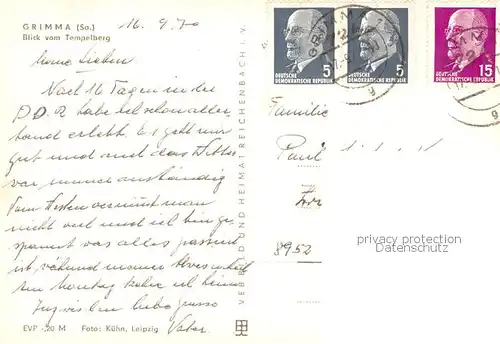 GRIMMA (Sa.)
Blick vom Tempelberg
16. 9. 70
meine Lieben
Nach 16 Tagen in der
DDR habe ich schon aller-
hand erlebt. Es geht mir
gut und auch das Wetter
war immer anständig
Vom Westen vernimmt man
nicht viel und ich bin ge-
spannt was alles passiert
ist, während meiner Abwesenheit
am Montag
liebe Grüsse
Vater
EVP -,20 M Foto: Kühn, Leipzig
VERBAND UND HEIMAT REICHENBACH I. V.
5
DEUTSCHE
DEMOKRATISCHE REPUBLIK
5
DEUTSCHE
DEMOKRATISCHE REPUBLIK
15
DEUTSCHE
DEMOKRATISCHE REPUBLIK
Familie
Paul
8952
privacy protection
Datenschutz